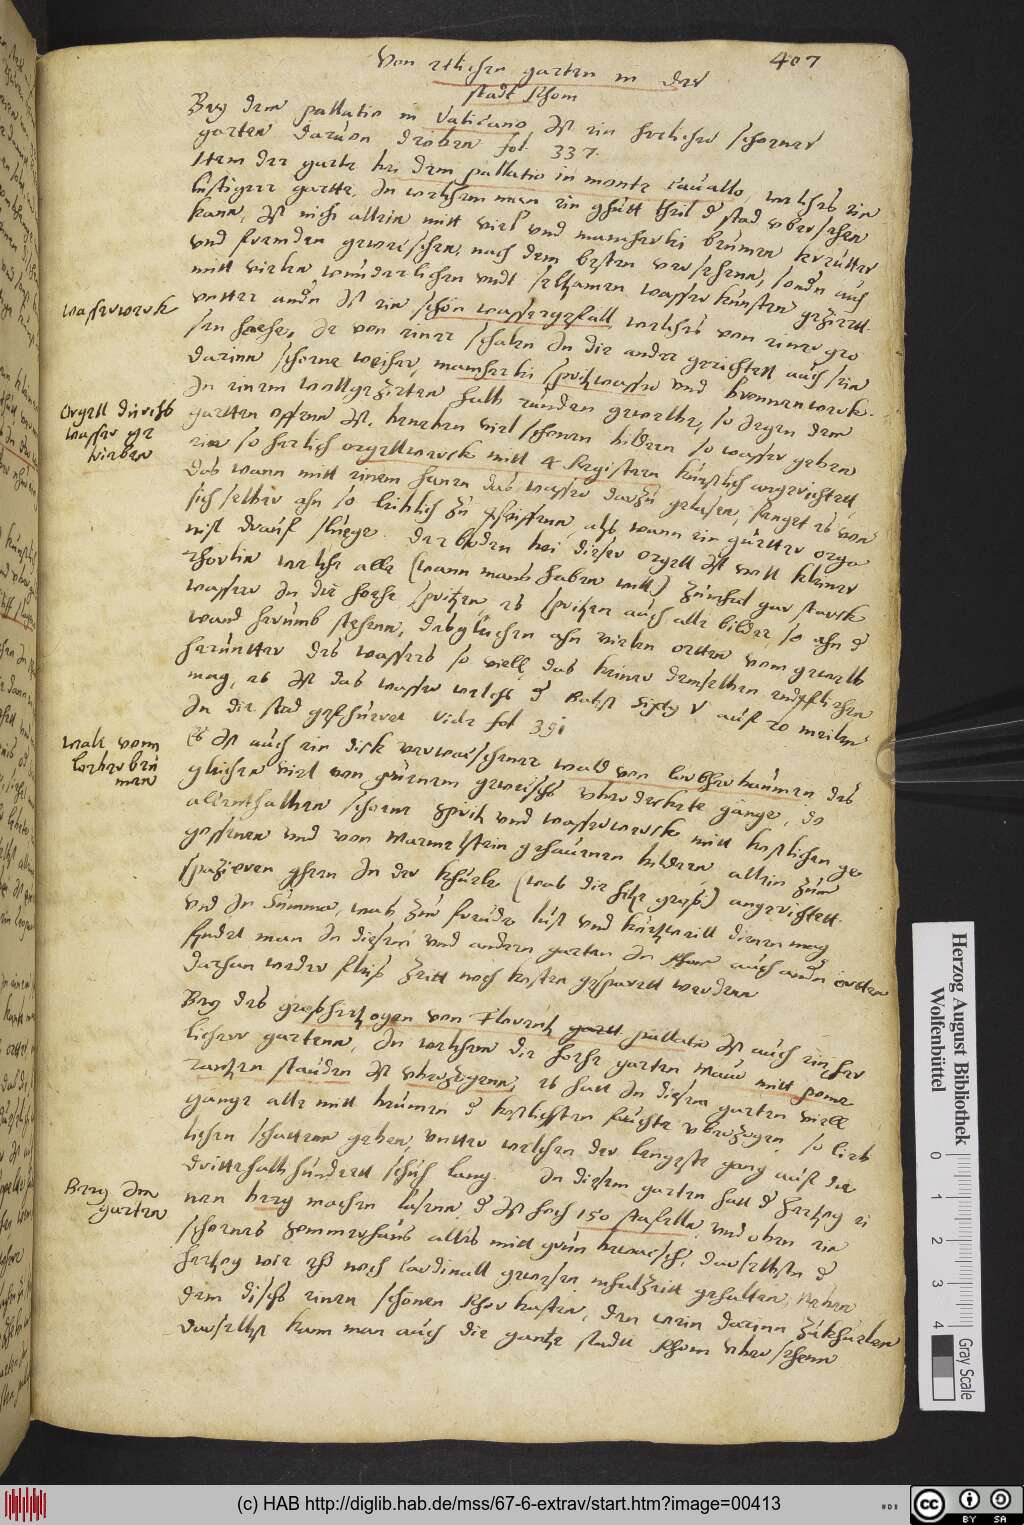 407
Von etlichen garten in der
stadt Rhom
Bey dem pallatio in Vaticano ist ein herlicher schoener
garten daruon droben fol. 337.
Item der garte bei dem pallatio in monte cauallo, welches ein
lustigere gartte, In welchem man ein ghutt theil der stad vbersehen
kann, ist nicht allein mitt viel vnd mancherlei beumen kreutter
vnd frembden geweschen, nach dem besten versehenn, sondern auch
mitt vielen wunderlichen vndt seltzamen wasser künsten geziertt.
wasserwerck
vntter andern ist ein schön wassergefall welches von einer gro
sen hoehe, Je von einer schalen In die ander gerichtett auch sein
darinn schoene weiher, mancherlei spritzwasser vnd brunnenwerck.
Orgell durchs
wasser ge
trieben
In einem wollgezirten halb runden gewelbe, so gegen dem
gartten offenn ist, beneben viel schonen bildern so wasser geben
ein so herlich orgellwerck mitt 4 Registern künstlich angerichtett
das wann mitt einem hanen das wasser darzu gelasen, fanget es von
sich selber ahn so lieblich zu pfeiffenn, alß wann ein gutter orga
nist drauf schlüege. Der boden bei dieser orgell ist voll kleiner
rhörlin welche alle (wann mans haben will) zumhal gar starck
wasser In die hoehe spritzen, es spritzen auch alle bilder so ahn der
wand herumb stehenn, desgleichen ahn vielen ortten vom gewelb
herunter des wassers so viell, das keiner demselben entpfliehen
mag, es ist das wasser welchs der Babst Sixtg V auf 20 meilen
In die stad gefhueret vide fol 391
Walt vonn
lorberbeu
men
Es ist auch ein dick verwachsener wald von lorbherbeumen des
gleichen viel von grüenem geweschs vberdeckete gänge, do
allenthalben schoene spritz vnd wasserwerck mitt kostlichen ge
gossenen vnd von Marmelstein gehauenen bildern allein zum
spazieren gehen In der khüele (wab die hitze groß) angerichtett.
vnd In Summa, was zur freude lust vnd kurtzweill dienen mag
findet man In diesem vnd andern garten In Rhom auch andern ortten
daran weder fleiß zeitt noch kosten gesparett werdenn
Bey des großhertzogen von Florentz pallatio ist auch ein her
licher gartenn, In welchem die hoehe garten Maur mitt pome
rantzen stauden ist vberzogenn, es hatt In diesem garten viell
gange alle mitt beumen der kostlichsten fruchte vberzogen, so lieb
lichen schattenn geben, vntter welchen der lengste gang auf die
dritthalbhundertt schuch lang. In diesem garten hatt der hertzog ei
Berg Im
garten
nen berg machen lasenn der ist hoch 150 staffelln, vnd oben ein
schoenes sommerhaus alles mitt grün bewachsen, daselbsten der
hertzog wie ehr noch Cardinall gewesen mhalzeitt gehalten, Neben
dem dischs einen schönen Rhor kasten, den wein darinn zukhuelen
daselbst kann man auch die gantze stadtt Rhom vbersehenn
Herzog August Bibliothek
Wolfenbüttel
0 1 2 3 4
Gray Scale
(c) HAB http://diglib.hab.de/mss/67-6-extrav/start.htm?image=00413
HAB
cc BY SA